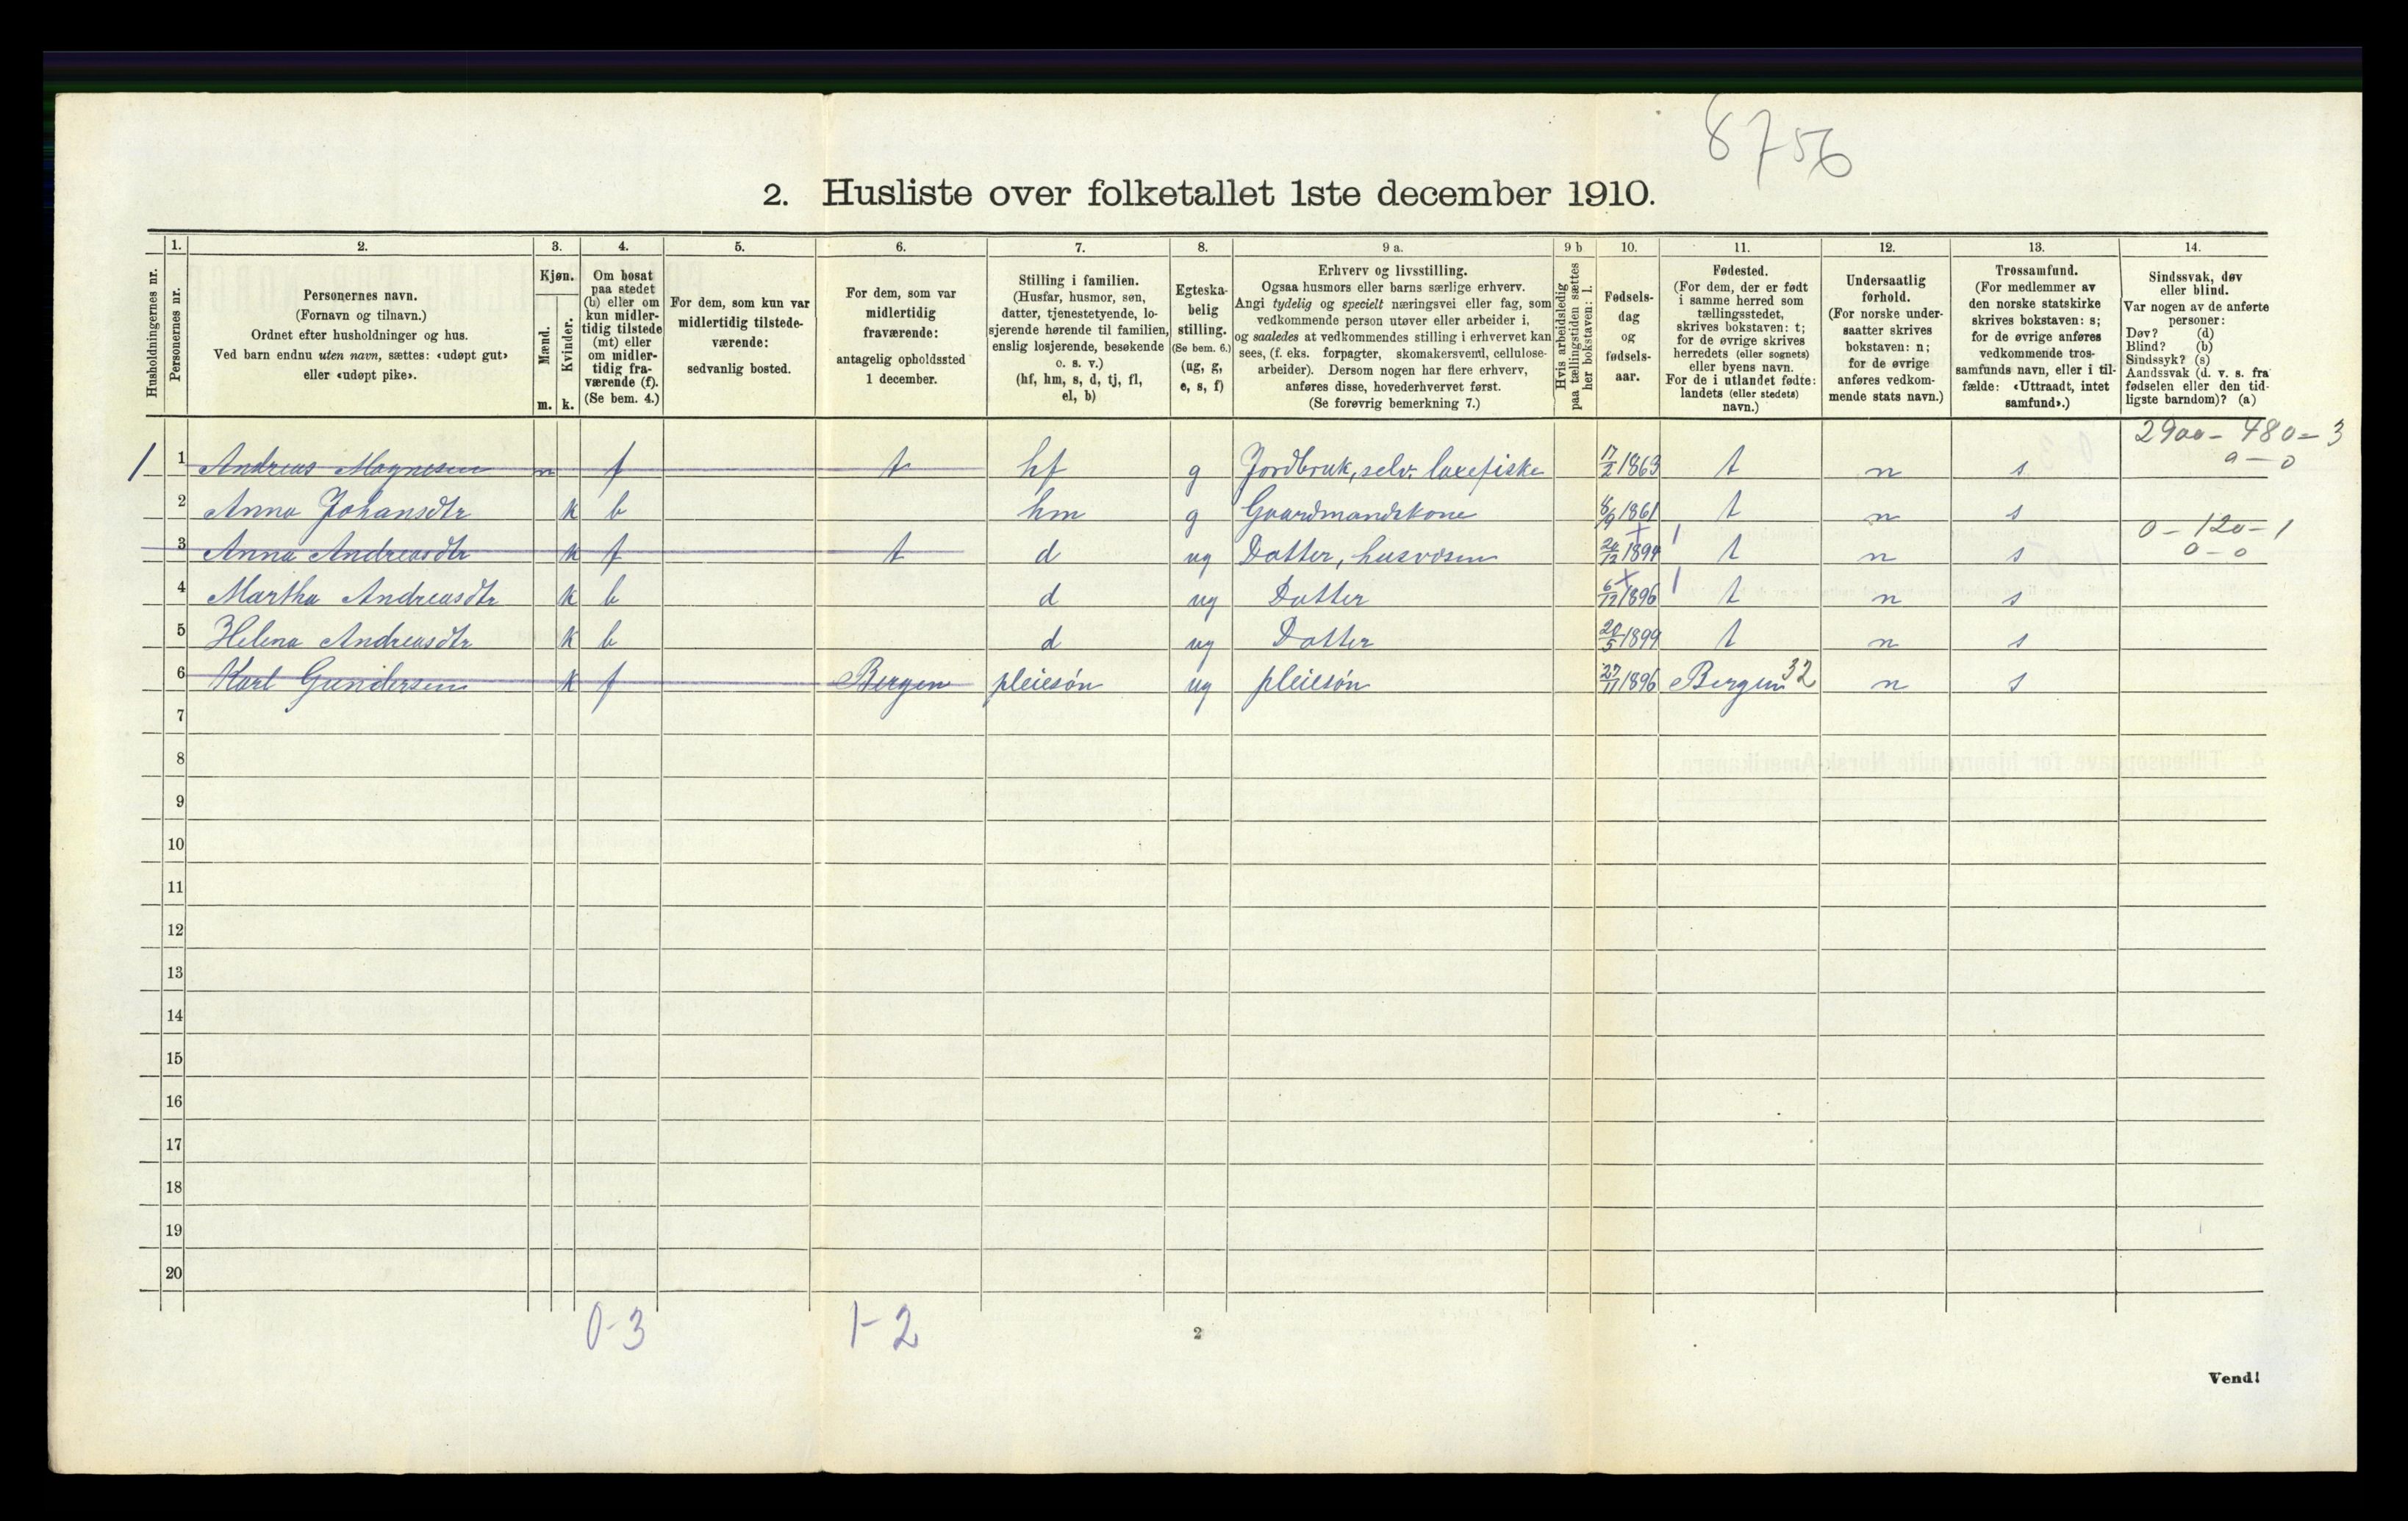 8756
2. Husliste over folketallet 1ste december 1910.
Husholdningernes nr.
1.
Personernes nr.
2.
Personernes navn.
(Fornavn og tilnavn.)
Ordnet efter husholdninger og hus.
Ved barn endnu uten navn, sættes: «udøpt gut»
eller «udøpt pike».
3.
Kjøn.
Mænd.
Kvinder.
m. k.
4.
Om bosat
paa stedet
(b) eller om
kun midler-
tidig tilstede
(mt) eller
om midler-
tidig fra-
værende (f).
(Se bem. 4.)
5.
For dem, som kun var
midlertidig tilstede-
værende:
sedvanlig bosted.
6.
For dem, som var
midlertidig
fraværende:
antagelig opholdssted
1 december.
7.
Stilling i familien.
(Husfar, husmor, søn,
datter, tjenestetyende, lo-
sjerende hørende til familien,
enslig losjerende, besøkende
o. s. v.)
(hf, hm, s, d, tj, fl,
el, b)
8.
Egteska-
belig
stilling.
(Se bem. 6.)
(ug, g,
e, s, f)
9 a.
Erhverv og livsstilling.
Ogsaa husmors eller barns særlige erhverv.
Angi tydelig og specielt næringsvei eller fag, som
vedkommende person utøver eller arbeider i,
og saaledes at vedkommendes stilling i erhvervet kan
sees, (f. eks. forpagter, skomakersvend, cellulose-
arbeider). Dersom nogen har flere erhverv,
anføres disse, hovederhvervet først.
(Se forøvrig bemerkning 7.)
9 b
Hvis arbeidsledig
paa tællingstiden sættes
her bokstaven: l.
10.
Fødsels-
dag
og
fødsels-
aar.
11.
Fødested.
(For dem, der er født
i samme herred som
tællingsstedet,
skrives bokstaven: t;
for de øvrige skrives
herredets (eller sognets)
eller byens navn.
For de i utlandet fødte:
landets (eller stedets)
navn.)
12.
Undersaatlig
forhold.
(For norske under-
saatter skrives
bokstaven: n;
for de øvrige
anføres vedkom-
mende stats navn.)
13.
Trossamfund.
(For medlemmer av
den norske statskirke
skrives bokstaven: s;
for de øvrige anføres
vedkommende tros-
samfunds navn, eller i til-
fælde: «Uttraadt, intet
samfund».)
14.
Sindssvak, døv
eller blind.
Var nogen av de anførte
personer:
Døv? (d)
Blind? (b)
Sindssyk? (s)
Aandssvak (d. v. s. fra
fødselen eller den tid-
ligste barndom)? (a)
2900 - 480 = 3
0 - 0
1 1 Andreas Magnesen m f t hf g Jordbruk, selv. laxefiske 17/2 1863 t n s
2 Anna Johansdtr k b hm g Gaardmandskone 8/9 1861 t n s
0 - 120 - 1
0 - 0
3 Anna Andreasdtr k f t d ug Datter, husvæsen 20/12 1894 t n s
4 Martha Andreasdtr k b d ug Datter 6/12 1896 t n s
5 Helena Andreasdtr k b d ug Datter 20/5 1899 t n s
6 Karl Gundersen k f Bergen pleiesøn ug pleiesøn 27/11 1896 Bergen 32 n s
7
8
9
10
11
12
13
14
15
16
17
18
19
20
0-3 1-2
2
Vend!